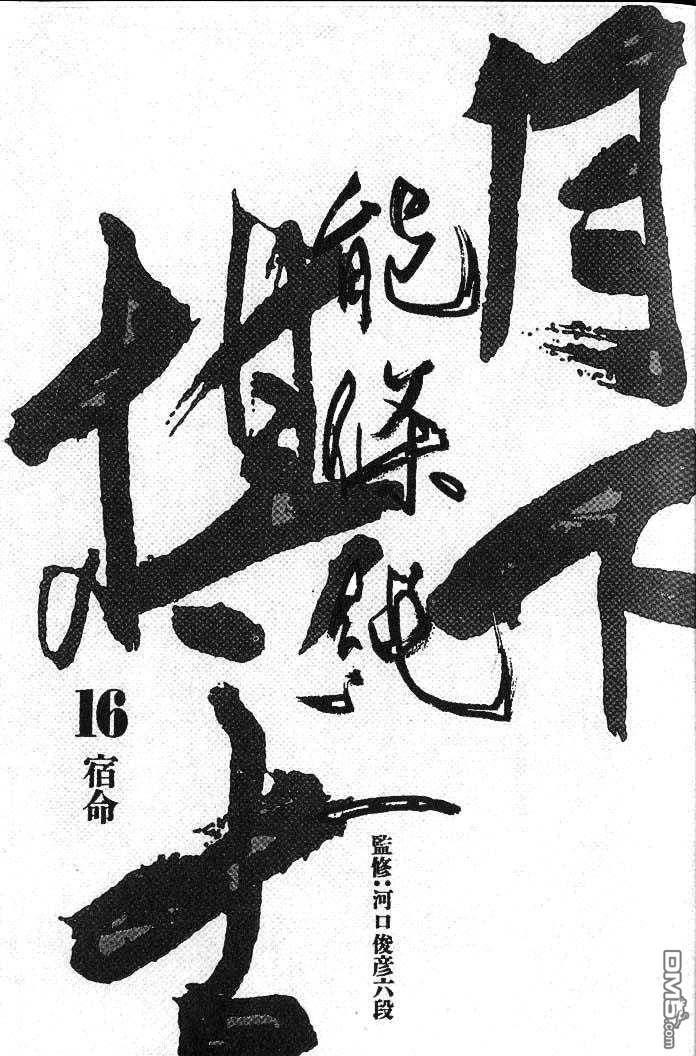 月下
棋士
能條純一
16
宿命
監修:河口俊彦六段
DM5.com